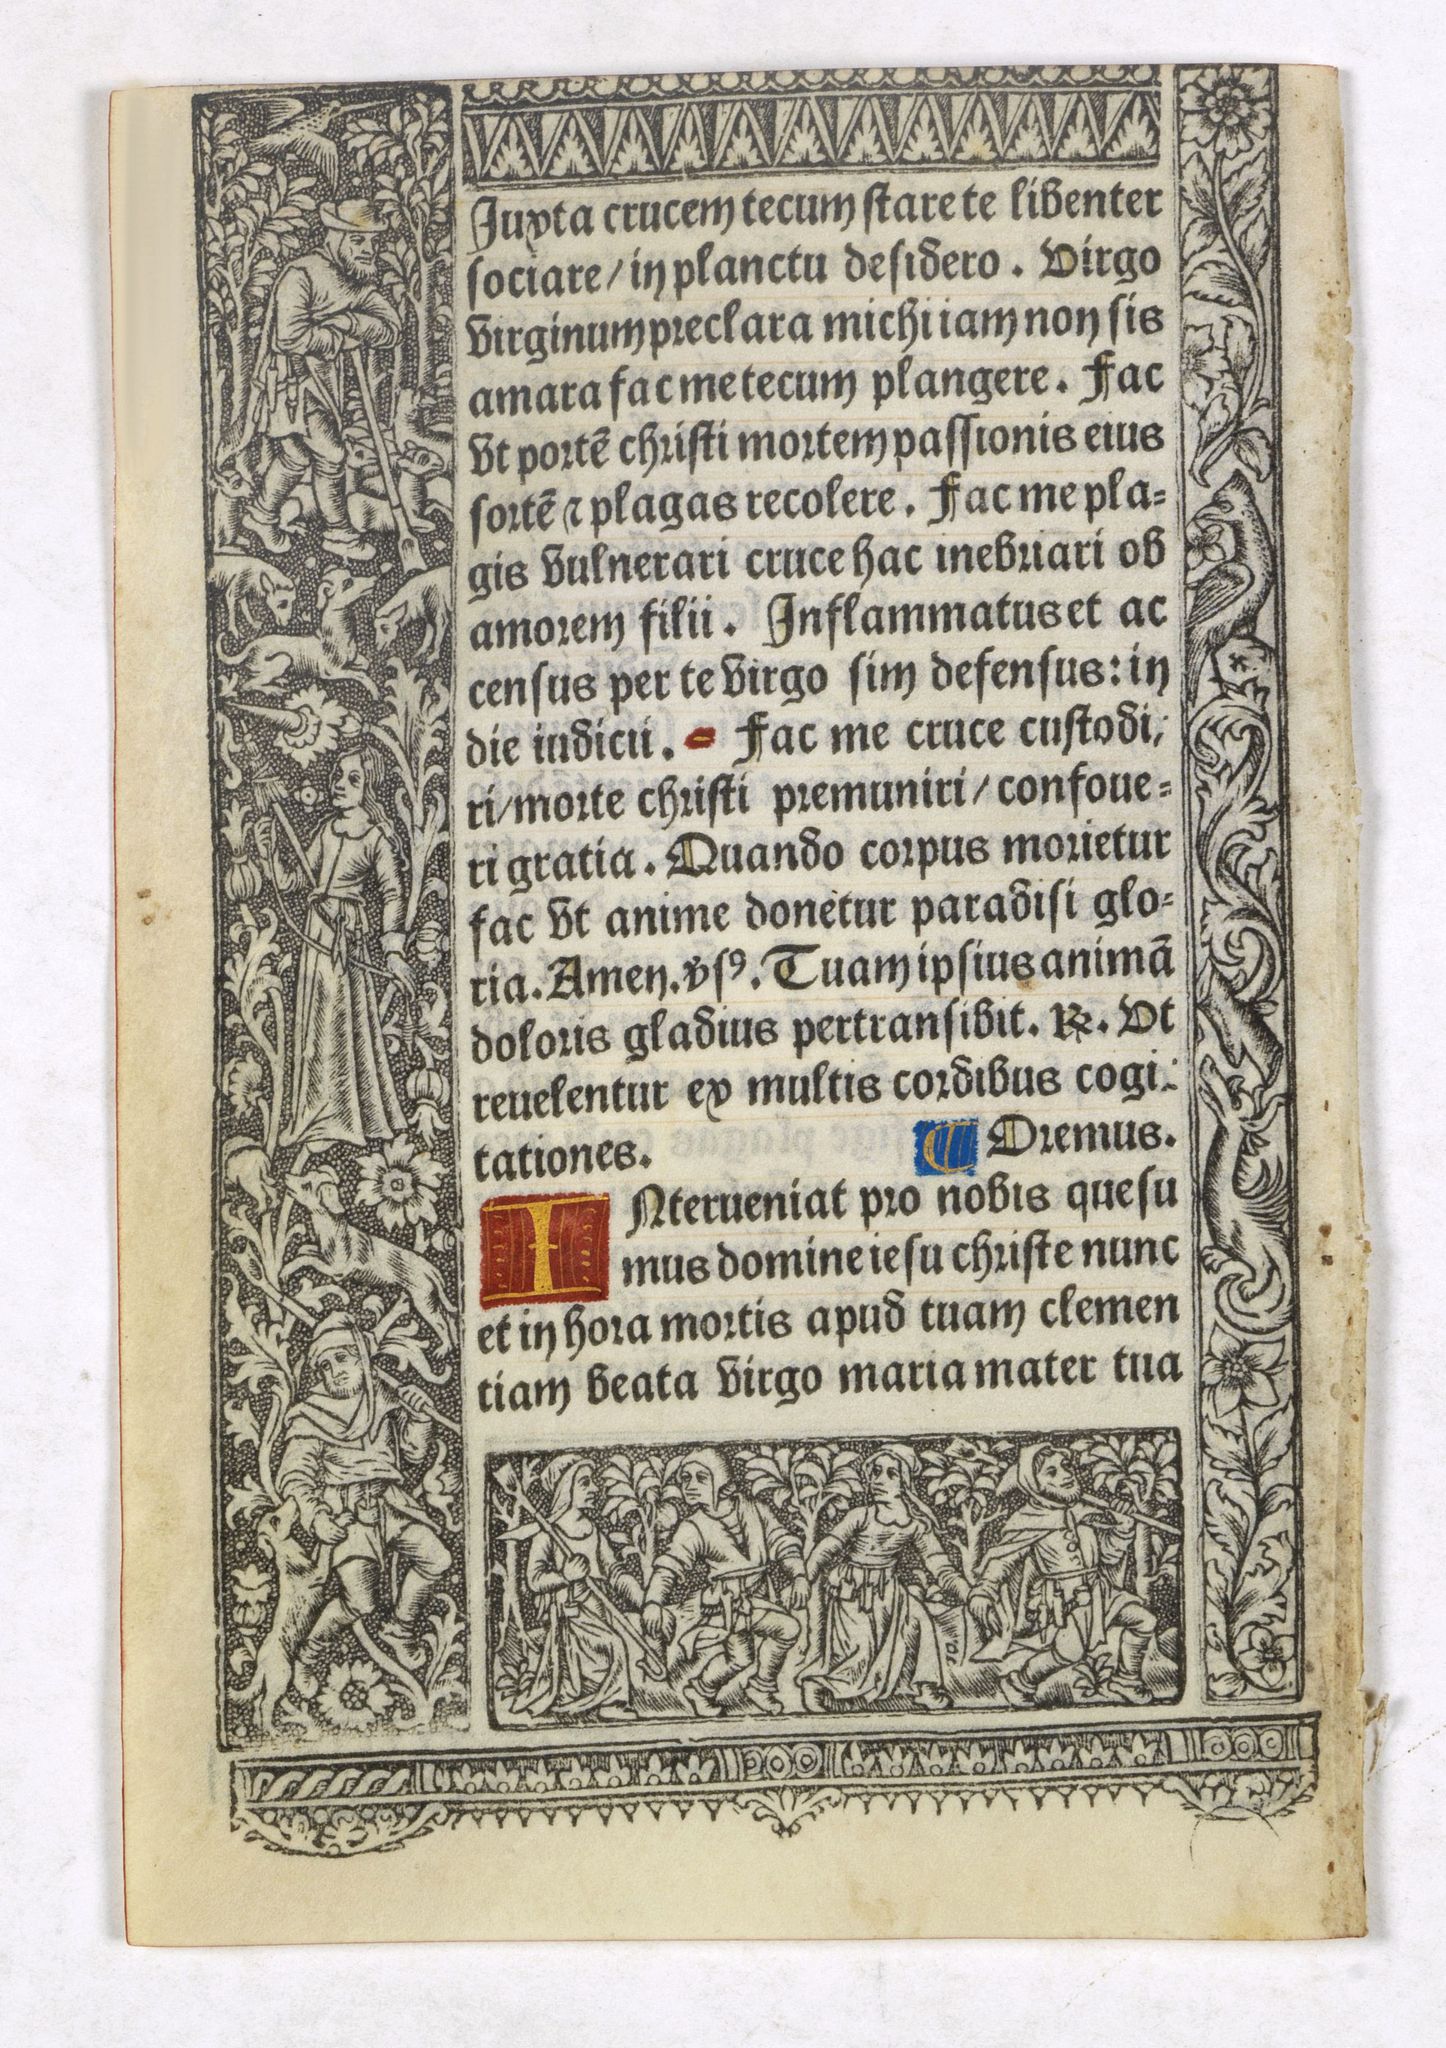 Juxta crucem tecum stare te libenter
sociare / in planctu desidero. Virgo
virginum preclara michi iam non sis
amara fac me tecum plangere. Fac
vt portẽ christi mortem passionis eius
sortẽ ⁊ plagas recolere. Fac me pla-
gis vulnerari cruce hac inebriari ob
amorem filii. Inflammatus et ac
census per te virgo sim defensus: in
die iudicii. Fac me cruce custodi-
ri / morte christi premuniri / confoue-
ri gratia. Quando corpus morietur
fac vt anime donetur paradisi glo-
ria. Amen. v̾sꝰ. Tuam ipsius animã
doloris gladius pertransibit. ℟. Vt
reuelentur ex multis cordibus cogi-
tationes. ⸿ Oremus.
INterueniat pro nobis quesu
mus domine iesu christe nunc
et in hora mortis apud tuam clemen
tiam beata virgo maria mater tua